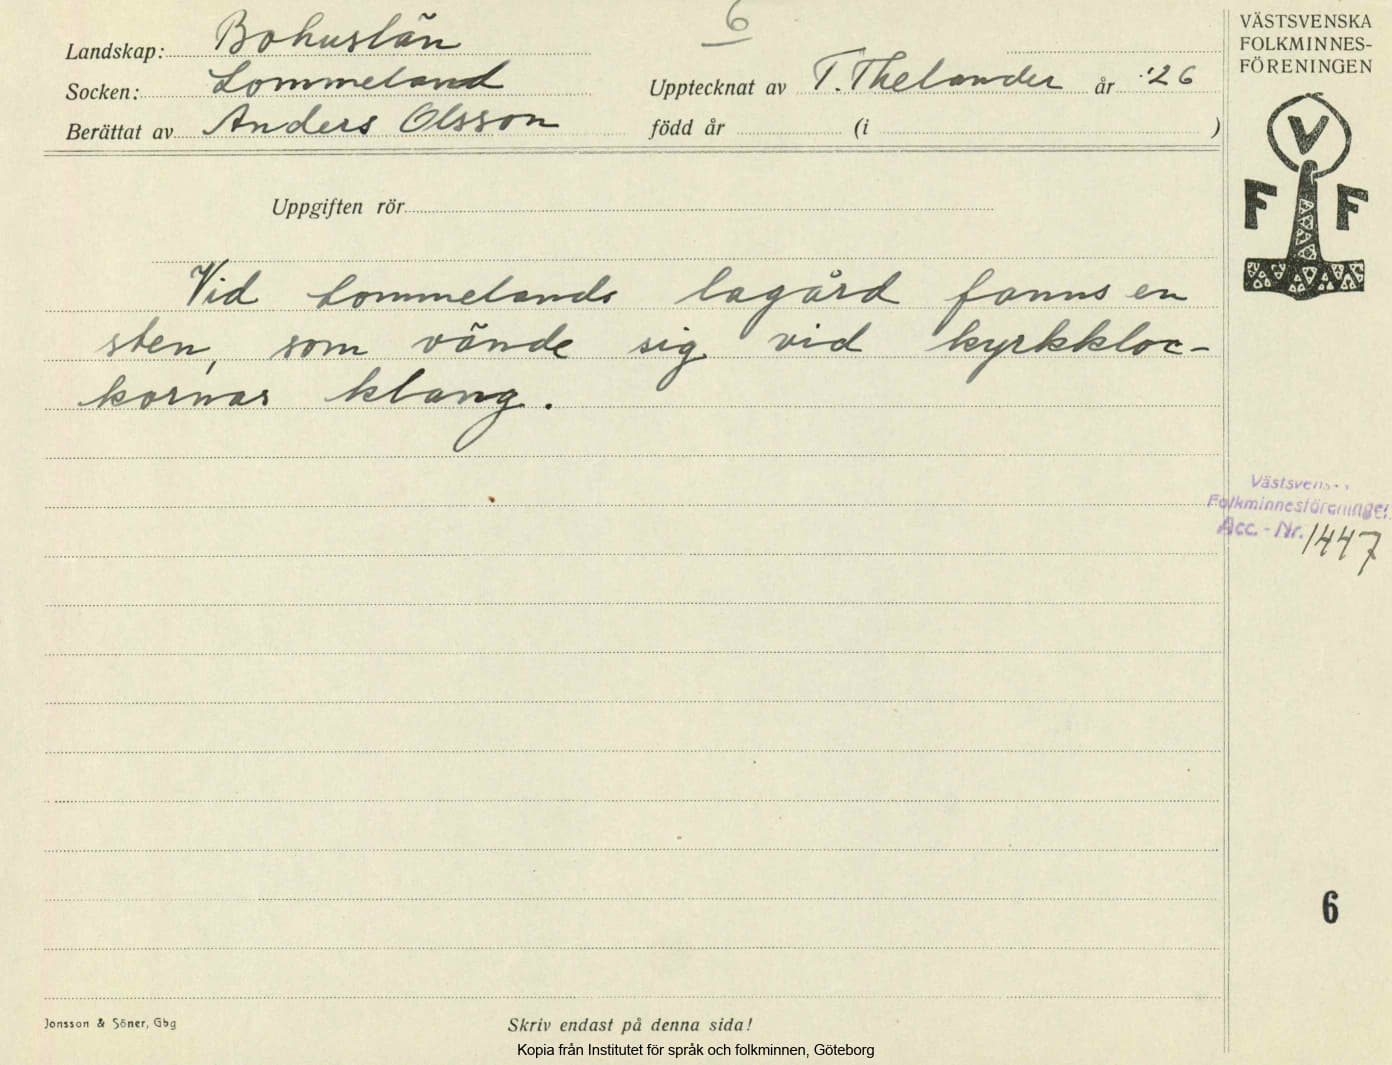 6
Landskap: Bohuslän
Socken: Lommeland
Upptecknat av T. Thelander år '26
Berättat av Anders Olsson född år (i )
VÄSTSVENSKA
FOLKMINNES-
FÖRENINGEN
V
F F
Uppgiften rör
Vid Lommelands lagård fanns en
sten, som vände sig vid kyrkkloc-
kornas klang.
Västsvens
Folkminnesföreningen
Acc. - Nr. 1447
6
Jonsson & Söner, Gbg
Skriv endast på denna sida!
Kopia från Institutet för språk och folkminnen, Göteborg